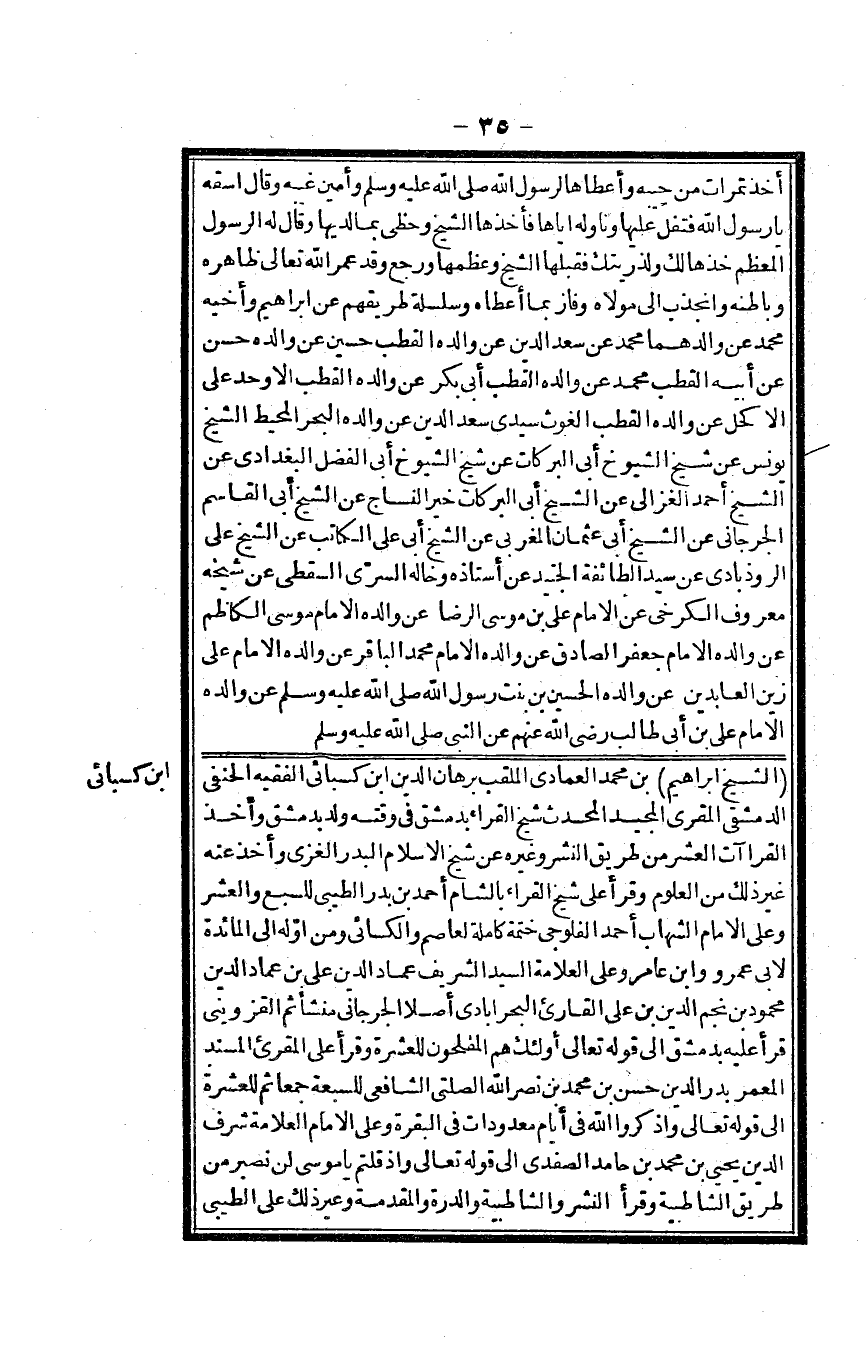 - ٣٥ -
أخذ تمرات من جيبه وأعطاها لرسول الله صلى الله عليه وسلم وأمين غيبه وقال اسقه
يارسول الله فتفل عليها وناوله اياها فأخذها الشيخ وحظى بمالديها وقال له الرسول
المعظم خذها لك ولذريتك فقبلها الشيخ وعظمها ورجع وقد عمر الله تعالى ظاهره
وباطنه وانجذب الى مولاه وفاز بما أعطاه وسلسلة طريقهم عن ابراهيم وأخيه
محمد عن والدهما محمد عن سعد الدين عن والده القطب حسين عن والده حسن
عن أبيه القطب محمد عن والده القطب أبى بكر عن والده القطب الاوحد على
الاكحل عن والده القطب الغوث سيدى سعد الدين عن والده البحر المحيط الشيخ
يونس عن شيخ الشيوخ أبى البركات عن شيخ الشيوخ أبى الفضل البغدادى عن
الشيخ أحمد الغزالى عن الشيخ أبى البركات خير النساج عن الشيخ أبى القاسم
الجرجانى عن الشيخ أبى عثمان المغربى عن الشيخ أبى على الكاتب عن الشيخ على
الروذبادى عن سيد الطائفة الجنيد عن أستاذه وخاله السرى السقطى عن شيخه
معروف الكرخى عن الامام على بن موسى الرضا عن والده الامام موسى الكاظم
عن والده الامام جعفر الصادق عن والده الامام محمد الباقر عن والده الامام على
زين العابدين عن والده الحسين بن بنت رسول الله صلى الله عليه وسلم عن والده
الامام على بن أبى طالب رضى الله عنهم عن النبى صلى الله عليه وسلم
ابن كسبائى
(الشيخ ابراهيم) بن محمد العمادى الملقب برهان الدين ابن كسبائى الفقيه الحنفى
الدمشقى المقرى المجيد المحدث شيخ القراء بدمشق فى وقته ولد بدمشق وأخذ
القراآت العشر من طريق النشر وغيره عن شيخ الاسلام البدر الغزى وأخذ عنه
غير ذلك من العلوم وقرأ على شيخ القراء بالشام أحمد بن بدر الطيبى للسبع والعشر
وعلى الامام الشهاب أحمد الفلوجى ختمة كاملة لعاصم والكسائى ومن اوّله الى المائدة
لابى عمرو وابن عامر وعلى العلامة السيد الشريف عماد الدين على بن عماد الدين
محمود بن نجم الدين بن على القارئ البحرابادى أصلا الجرجانى منشأ ثم القزوينى
قرأ عليه بدمشق الى قوله تعالى أولئك هم المفلحون للعشرة وقرأ على المقرئ المسند
المعمر بدر الدين حسن بن محمد بن نصر الله الصلتى الشافعى للسبعة جمعا ثم للعشرة
الى قوله تعالى واذكروا الله فى أيام معدودات فى البقرة وعلى الامام العلامة شرف
الدين يحيى بن محمد بن حامد الصفدى الى قوله تعالى واذ قلتم ياموسى لن نصبر من
طريق الشاطبية وقرأ النشر والشاطبية والدرة والمقدمة وغير ذلك على الطيبى